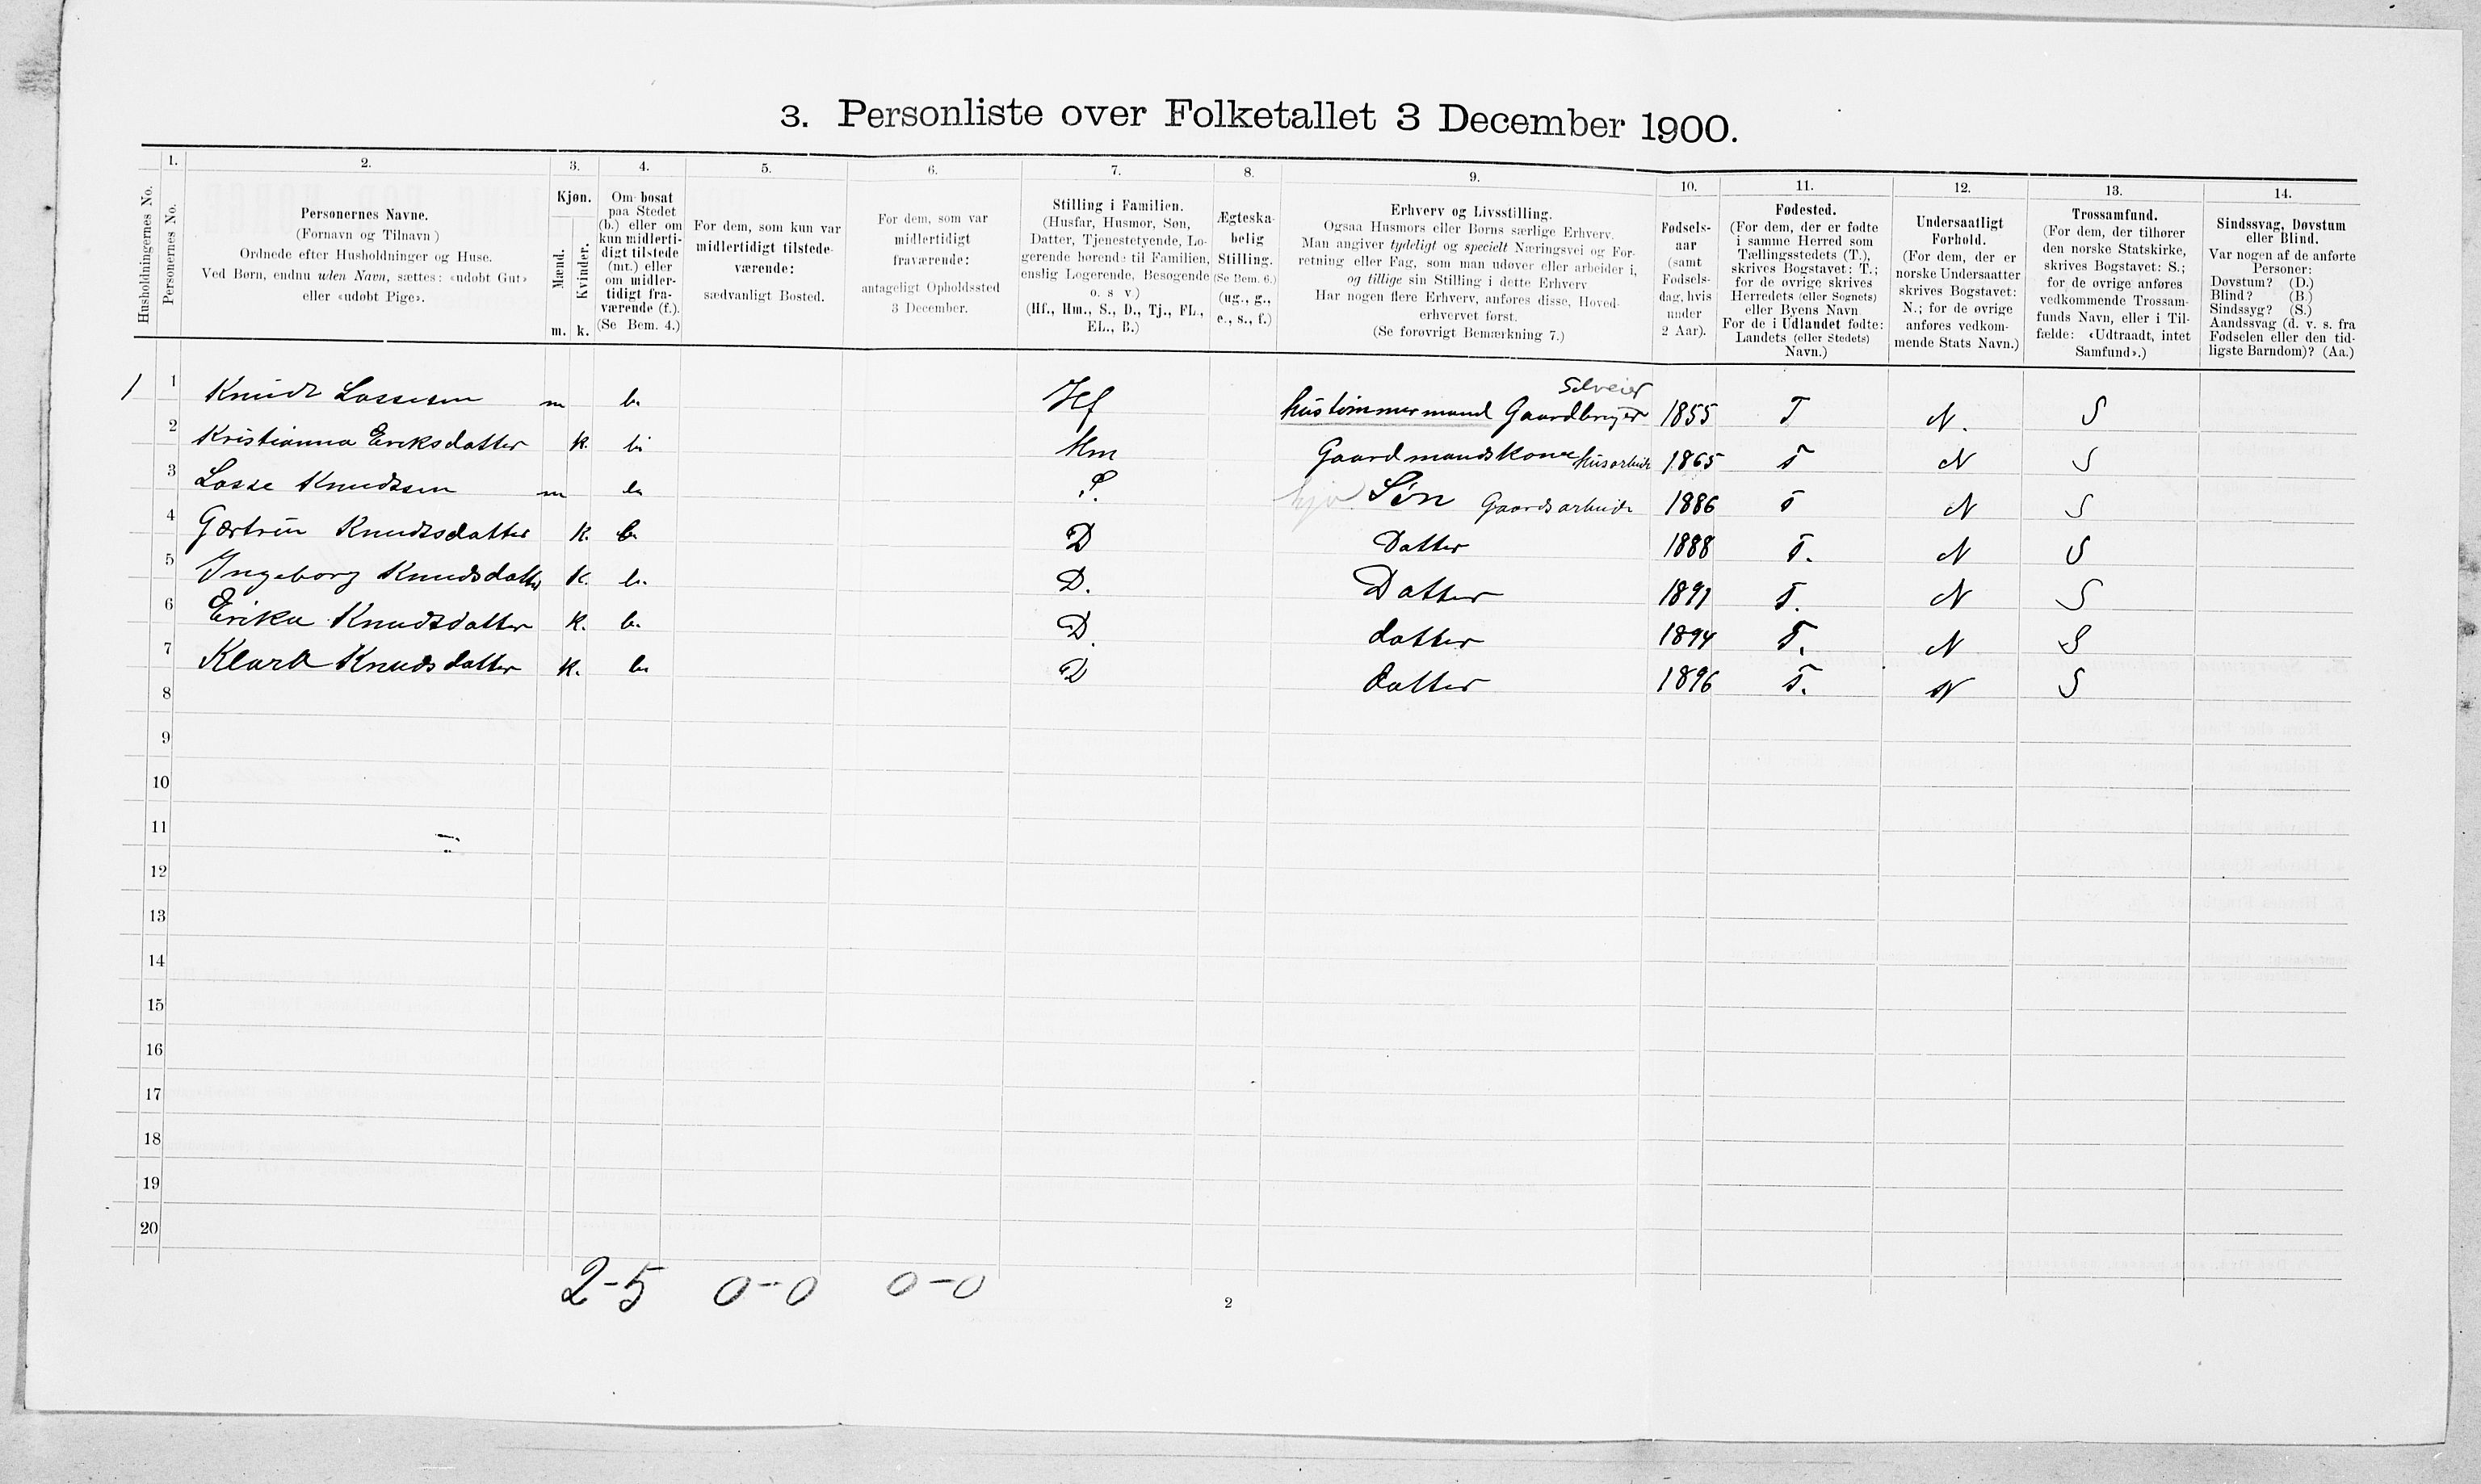 3. Personliste over Folketallet 3 December 1900.
Husholdningernes No.
1.
Personernes No.
2.
Personernes Navne.
(Fornavn og Tilnavn)
Ordnede efter Husholdninger og Huse.
Ved Børn, endnu uden Navn, sættes: «udøbt Gut»
eller «udøbt Pige».
3.
Kjøn.
Mænd.
Kvinder.
m. k.
4.
Om bosat
paa Stedet
(b.) eller om
kun midlerti-
digt tilstede
(mt.) eller
om midler-
tidigt fra-
værende (f.).
(Se Bem. 4.)
5.
For dem, som kun var
midlertidigt tilstede-
værende:
sædvanligt Bosted.
6.
For dem, som var
midlertidigt
fraværende:
antageligt Opholdssted
3 December.
7.
Stilling i Familien.
(Husfar, Husmor, Søn,
Datter, Tjenestetyende, Lo-
gerende hørende til Familien,
enslig Logerende, Besøgende
o. s v.)
(Hf., Hm., S., D., Tj., FL.,
EL., B.)
8.
Ægteska-
belig
Stilling.
(Se Bem. 6.)
(ug., g.,
e., s., f.)
9.
Erhverv og Livsstilling.
Ogsaa Husmors eller Børns særlige Erhverv.
Man angiver tydeligt og specielt Næringsvei og For-
retning eller Fag, som man udøver eller arbeider i,
og tillige sin Stilling i dette Erhverv
Har nogen flere Erhverv, anføres disse, Hoved-
erhvervet først.
(Se forøvrigt Bemærkning 7.)
10.
Fødsels-
aar
(samt
Fødsels-
dag, hvis
under
2 Aar).
11.
Fødested.
(For dem, der er fødte
i samme Herred som
Tællingsstedets (T.),
skrives Bogstavet: T.;
for de øvrige skrives
Herredets (eller Sognets)
eller Byens Navn
For de i Udlandet fødte:
Landets (eller Stedets)
Navn.)
12.
Undersaatligt
Forhold.
(For dem, der er
norske Undersaatter
skrives Bogstavet:
N.; for de øvrige
anføres vedkom-
mende Stats Navn.)
13.
Trossamfund.
(For dem, der tilhører
den norske Statskirke,
skrives Bogstavet: S.;
for de øvrige anføres
vedkommende Trossam-
funds Navn, eller i Til-
fælde: «Udtraadt, intet
Samfund».)
14.
Sindssvag, Døvstum
eller Blind.
Var nogen af de anførte
Personer:
Døvstum? (D.)
Blind? (B.)
Sindssyg? (S.)
Aandssvag (d. v. s. fra
Fødselen eller den tid-
ligste Barndom)? (Aa.)
Selveier
1 1 Knudt Lassesen m b. Hf hustømmermand Gaardbruger 1855 T N. S
2 Kristianna Eriksdatter k. b Hm Gaardmandskone husarbeide 1865 T N S
3 Lasse Knudtsen m b S. Søn Gaardsarbeide 1886 T N S
4 Gørtrün Knudtsdatter k. b. D Datter 1888 T. N S
5 Ingeborg Knudsdatter k. b. D. Datter 1891 T. N S
6 Erika Knudtsdatter k. b. D. datter 1894 T. N S
7 Klara Knudsdatter k. b D datter 1896 T. N S
8
9
10
11
12
13
14
15
16
17
18
19
20
2-5 0-0 0-0
2